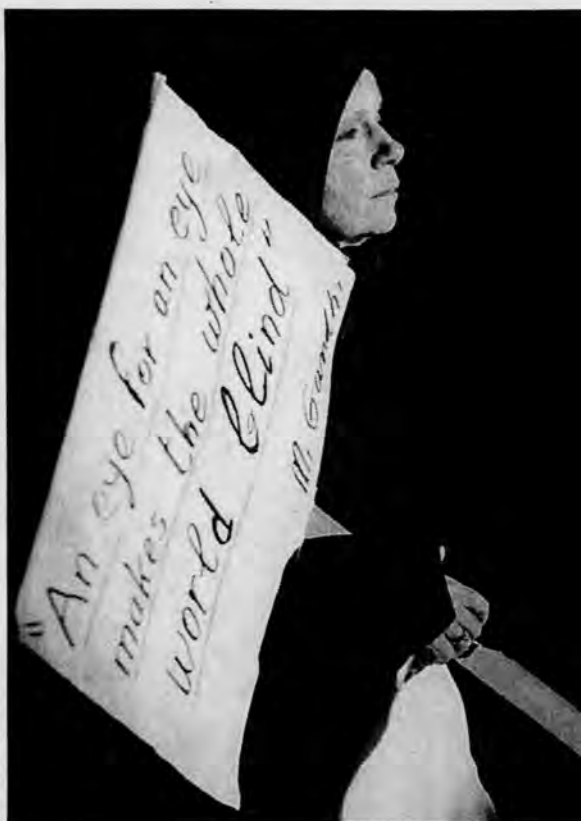 "An eye for an eye
makes the whole
world blind"
M. Gandhi